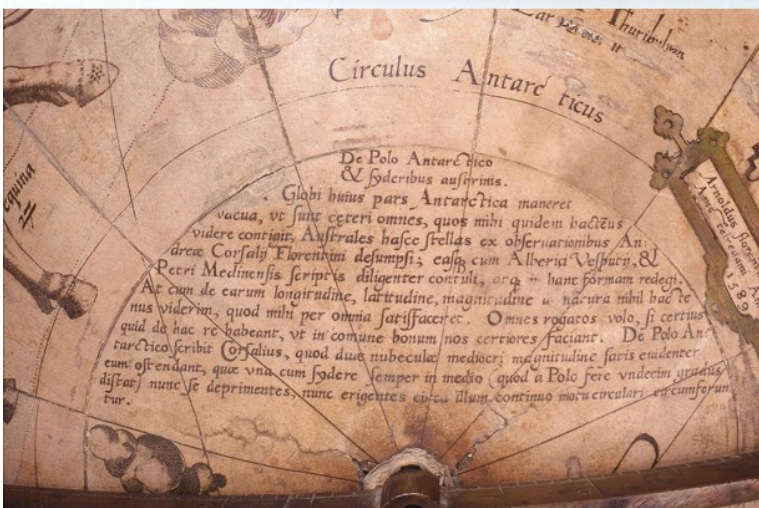 Thuribulum
Circulus Antarcticus
equina
De Polo Antarctico
& syderibus austrinis.
Globi huius pars Antarctica maneret
vacua, vt sunt ceteri omnes, quos mihi quidem hactenus
videre contigit, Australes hasce stellas ex obseruationibus An:
dreæ Corsalij Florentini desumpsi; easq cum Alberici Vesputij, &
Petri Medinensis scriptis diligenter contuli, hanc formam redegi.
At cum de earum longitudine, latitudine, magnitudine natura nihil hacte
nus viderim, quod mihi per omnia satisfaceret. Omnes rogatos volo, si certius
quid de hac re habeant, vt in comune bonum nos certiores faciant. De Polo An:
tarctico scribit Corsalius, quod duæ nubeculæ mediocri magnitudine satis euidenter
eum ostendant, quæ vna cum sydere semper in medio (quod a Polo fere vndecim gradus
distat) nunc se deprimentes, nunc erigentes circa illum continuo motu circulari circumferun
tur.
Arnoldus
1589